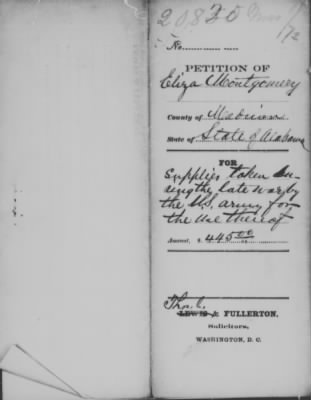 20835
No.
PETITION OF
Eliza Montgomery
County of Madison
State of State of Alabama
FOR
Supplies taken du-
ring the late war by
the U.S. army for
the use thereof
Amount, $ 445.00
Thos. C.
LEWIS & FULLERTON,
Solicitors,
WASHINGTON, D. C.